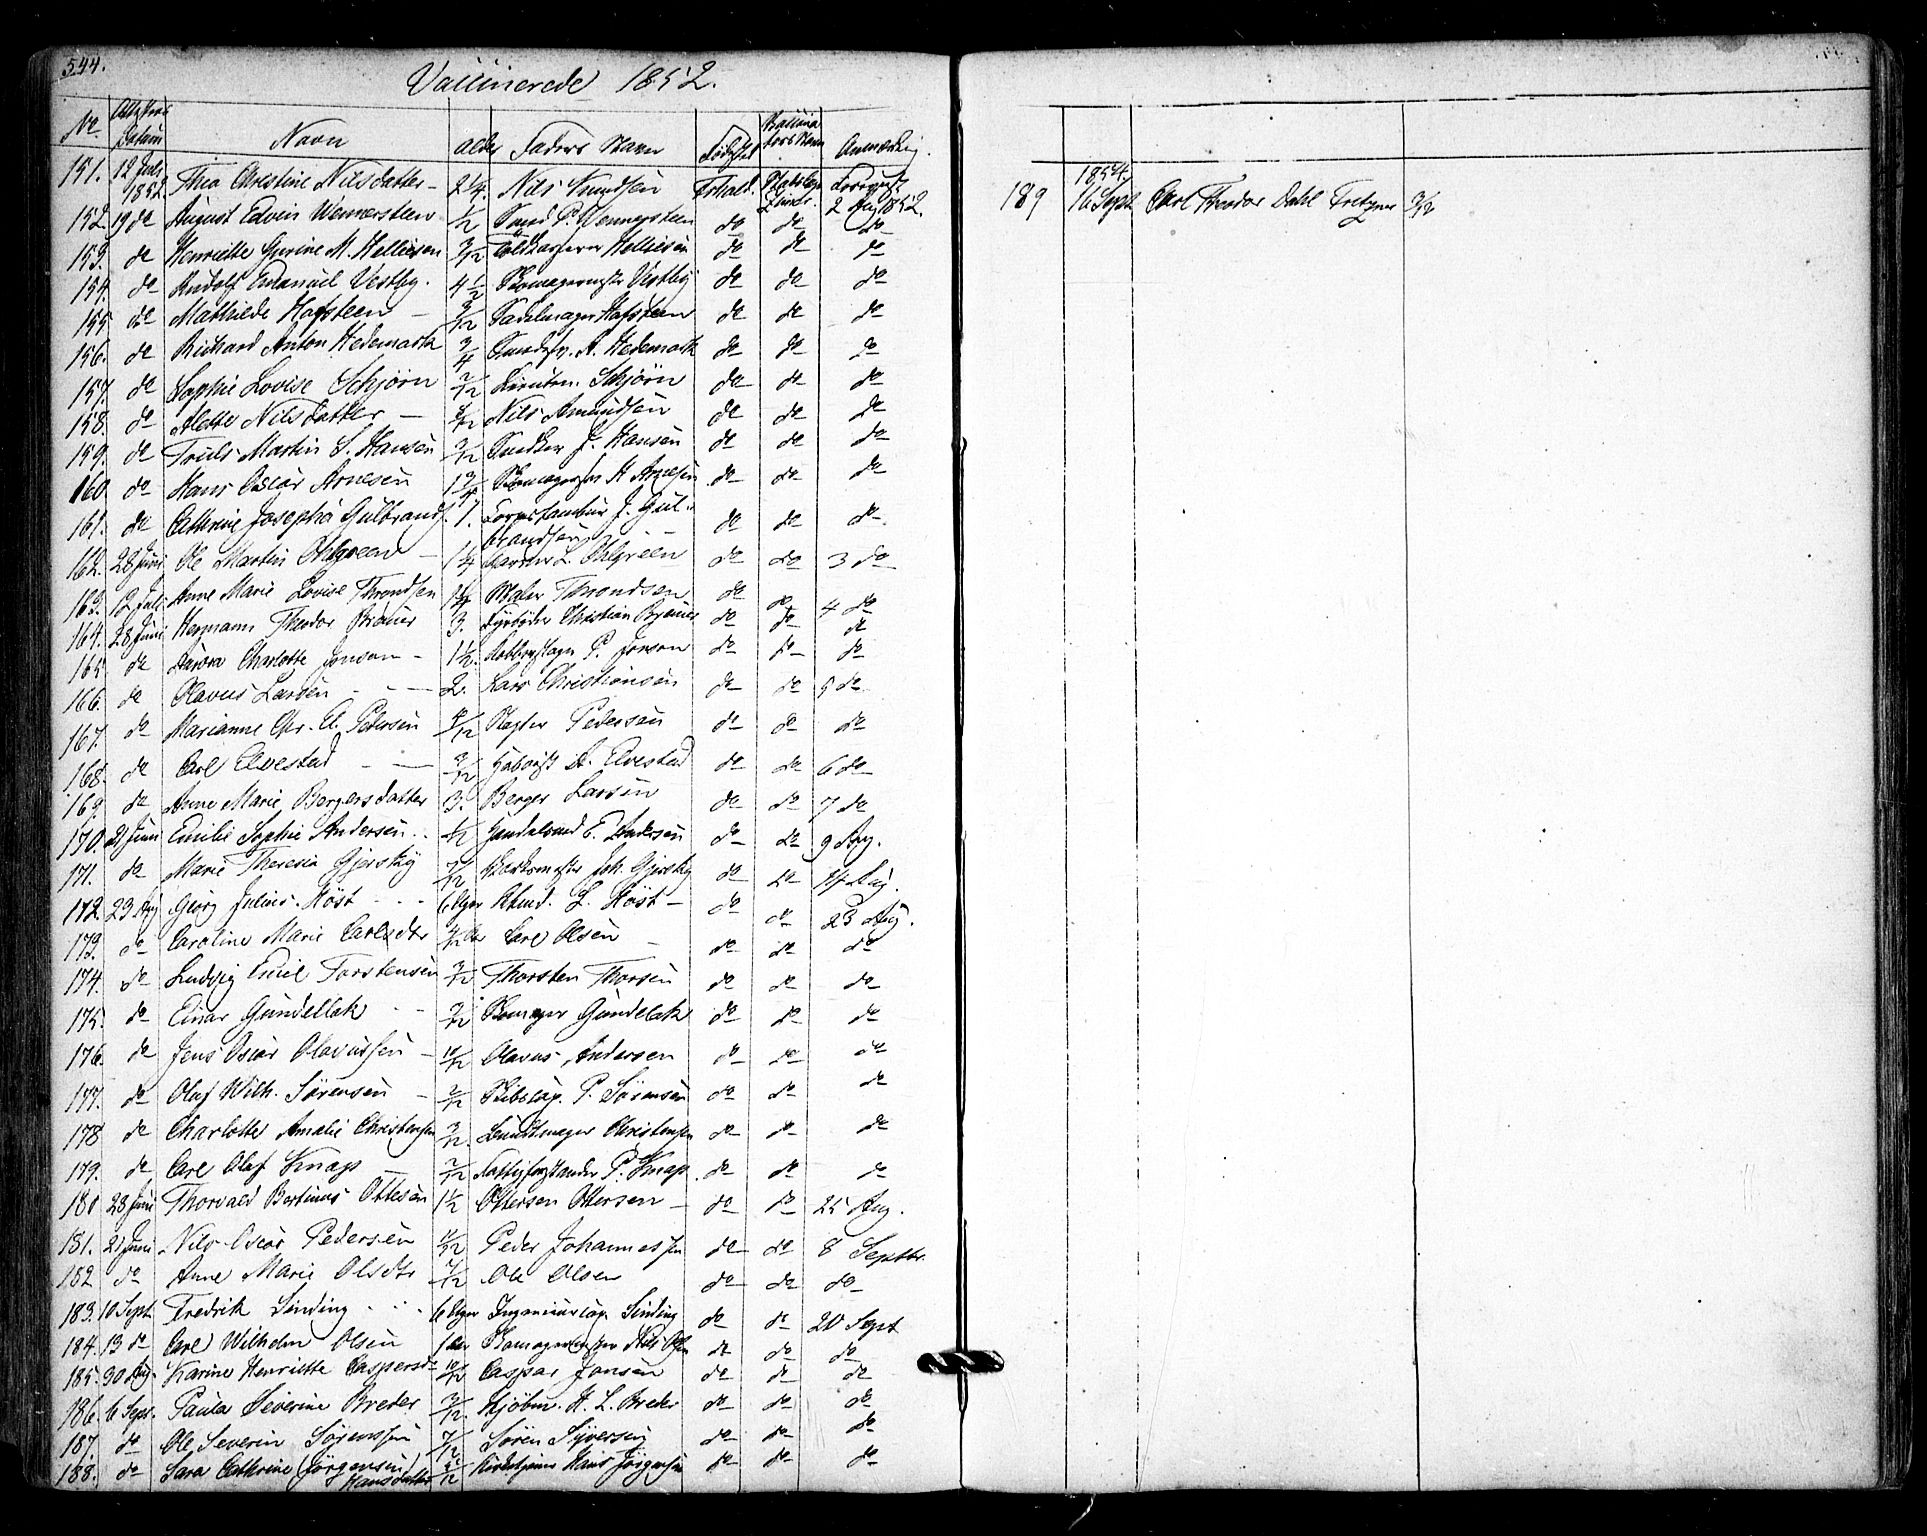 544.
Vaccinerede 1852.
No. Attestens Datum Navn alder Faders Navn Fødested Vaccinators Navn Anmærkng.
151. 12 Juli 1852. Thea Christine Nilsdatter - 2 1/4. Nils Knudsen Frhald.
2 Aug 1852.
152. 19 do August Edvin Wennersteen 1/2 do do do
153. do Henriette Gurine M. Helliesen 3/12 Helliesen do do do
154. do Rudolf Emanuel Vestby. 4 1/2 Skomagermestr Vestby do do do
155 do Mathilde Hafsteen - 3/12 Sadelmager Hafsteen do do do
156. do Richard Anton Hedemark 3/4 A. Hedemark do do do
157. do Sophie Lovise Schjörn 2/12 Lieutn. Schjörn do do do
158. do Alette Nilsdatter - Nils Amundsen do do do
159. do Truls Martin S. Hansen 3/12 Snedker J. Hansen do do do
160 do Hans Oscar Arnesen Arnesen do do do
161. do Cathrine Josepha Gulbrands. 1. Corpstambur J. Gul-
brandsen do do do
162. 28 Juni Ole Martin Ohlgreen - 1 1/4 Garver L. Ohlgreen do do 3 do
163. 12 Juli Anne Marie Lovise Throndsen 1 1/4 Maler Throndsen do do 4 do
164. 28 Juni Hermann Theodor 3. Fyrbøder Christian do do do
165 do Aurora Charlotte Jonson - 1 1/2. P. Jonson do do do
166. do Olavus Larsen - - 2. Lars Christiansen do do 5 do
167. do Marianne Chr. El. Pedersen Slagter Pedersen do do do
168. do Carl Elvestad - - 3/12 A. Elvestad do do 6 do
169. do Anne Marie Bergersdatter 3. Berger Larsen do do 7 do
170. 21 Juni Emilie Sophie Andersen Handelsmd E. Andersen do do 9 Aug.
171. do Marie Theresia Gjersthy 7/12 Joh. Gjersthy do do 14 Aug.
172. 23 Aug Georg Julius Höst - - 6 Uger L. Höst - do do 23 Aug.
173. do Caroline Marie Carlsdtr Carl Olsen - do do do
174. do Ludvig Emil Torstensen 3/12 Thorsten Thorsen do do do
175. do Einar Gundellak - - 3/12 Skomager Gundelak do do do
176. do Jens Oscar Olavussen - 10/12 Olavus Andersen do do do
177. do Olaf Wilh. Sörensen - 2/12 Skibscap. P. Sörensen do do do
178 do Charlotte Amalie Christensen 3/12. Christensen do do do
179. do Carl Olaf Knap - 2/12 Fattigforstander P. Knap do do do
180 28 Juni Thorvald Bertinus Ottesen 1 1/2 Ottersen Ottersen - do do 25 Aug.
181. 21 Juni Nils Oscar Pedersen 11/12 Peder Johannessen do do 8 Septbr.
182 do Anne Marie Olsdtr 7/12 Ole Olsen do do do
183. 10 Sept. Fredrik Sinding - - 6 Uger Ingenieurcap. Sinding do do 20 Sept
184. 13 do Carl Wilhelm Olsen 1 Nils do do do
185. 30 Aug. Karine Henriette Caspersdr 10/12 Caspar Jonsen do do do
186. 6 Sept. Paula Severine Breder 3/12. Kjöbm. H. L. Breder do do do
187. do Ole Severin Sörenssen 7/12 Sören Syversen do do do
188. do Sara Cathrine (Jörgensen)
Hansdatter Hans Jörgensen do do do
189 1854. 16 Sept Carl Theodor Dahl Fretzner 3/12